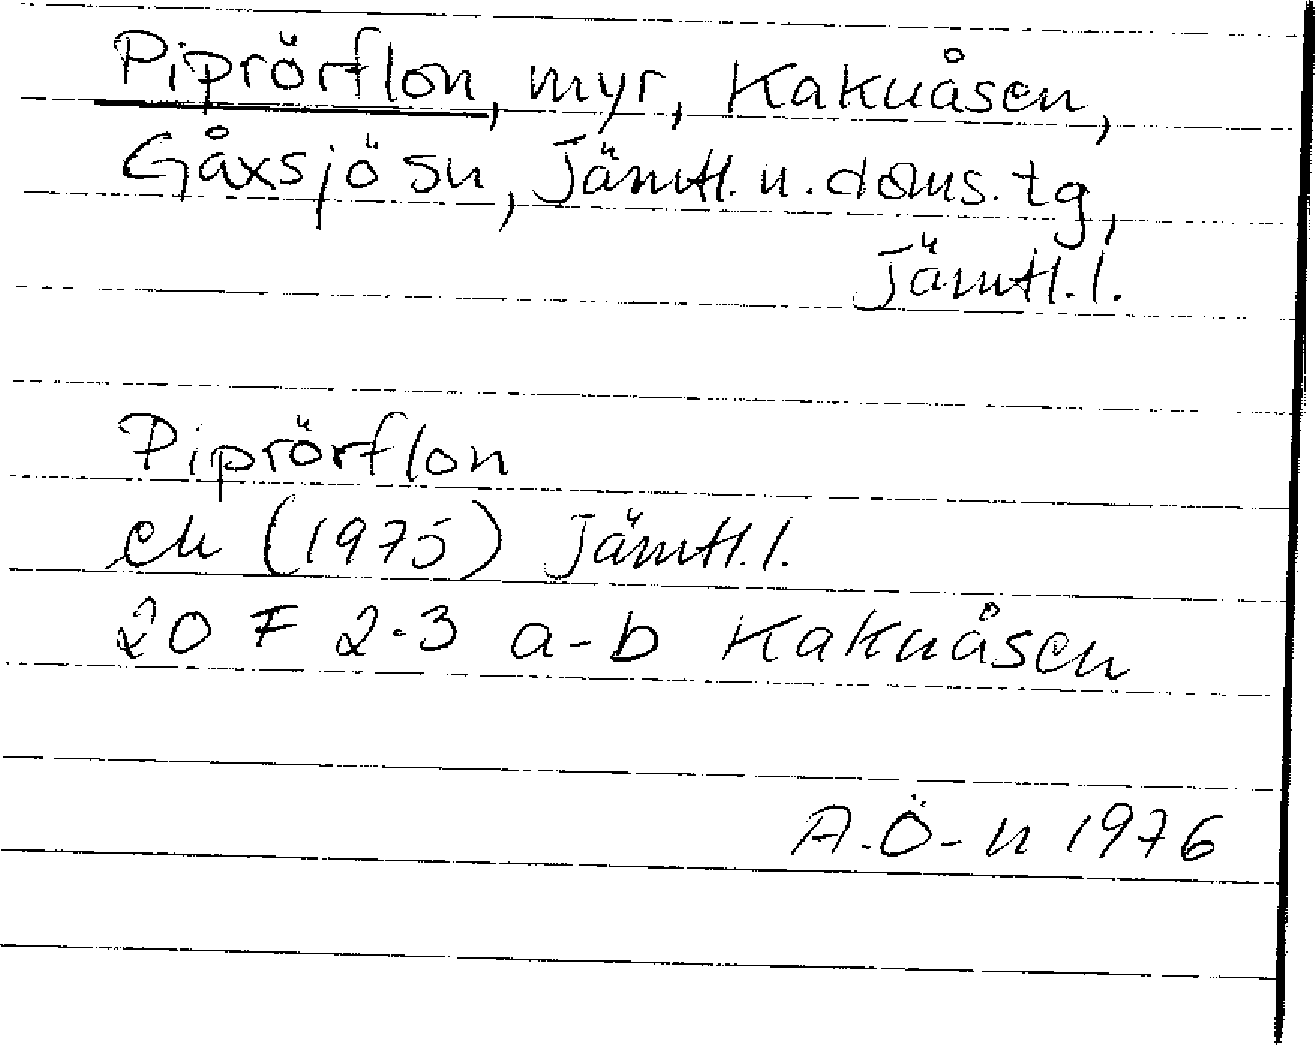 Piprörflon, myr, Kakuåsen,
Gåxsjö sn, Jämtl. n. doms. tg,
Jämtl. l.
Piprörflon
ek (1975) Jämtl. l.
20 F 2-3 a-b Kakuåsen
A. Ö-n 1976